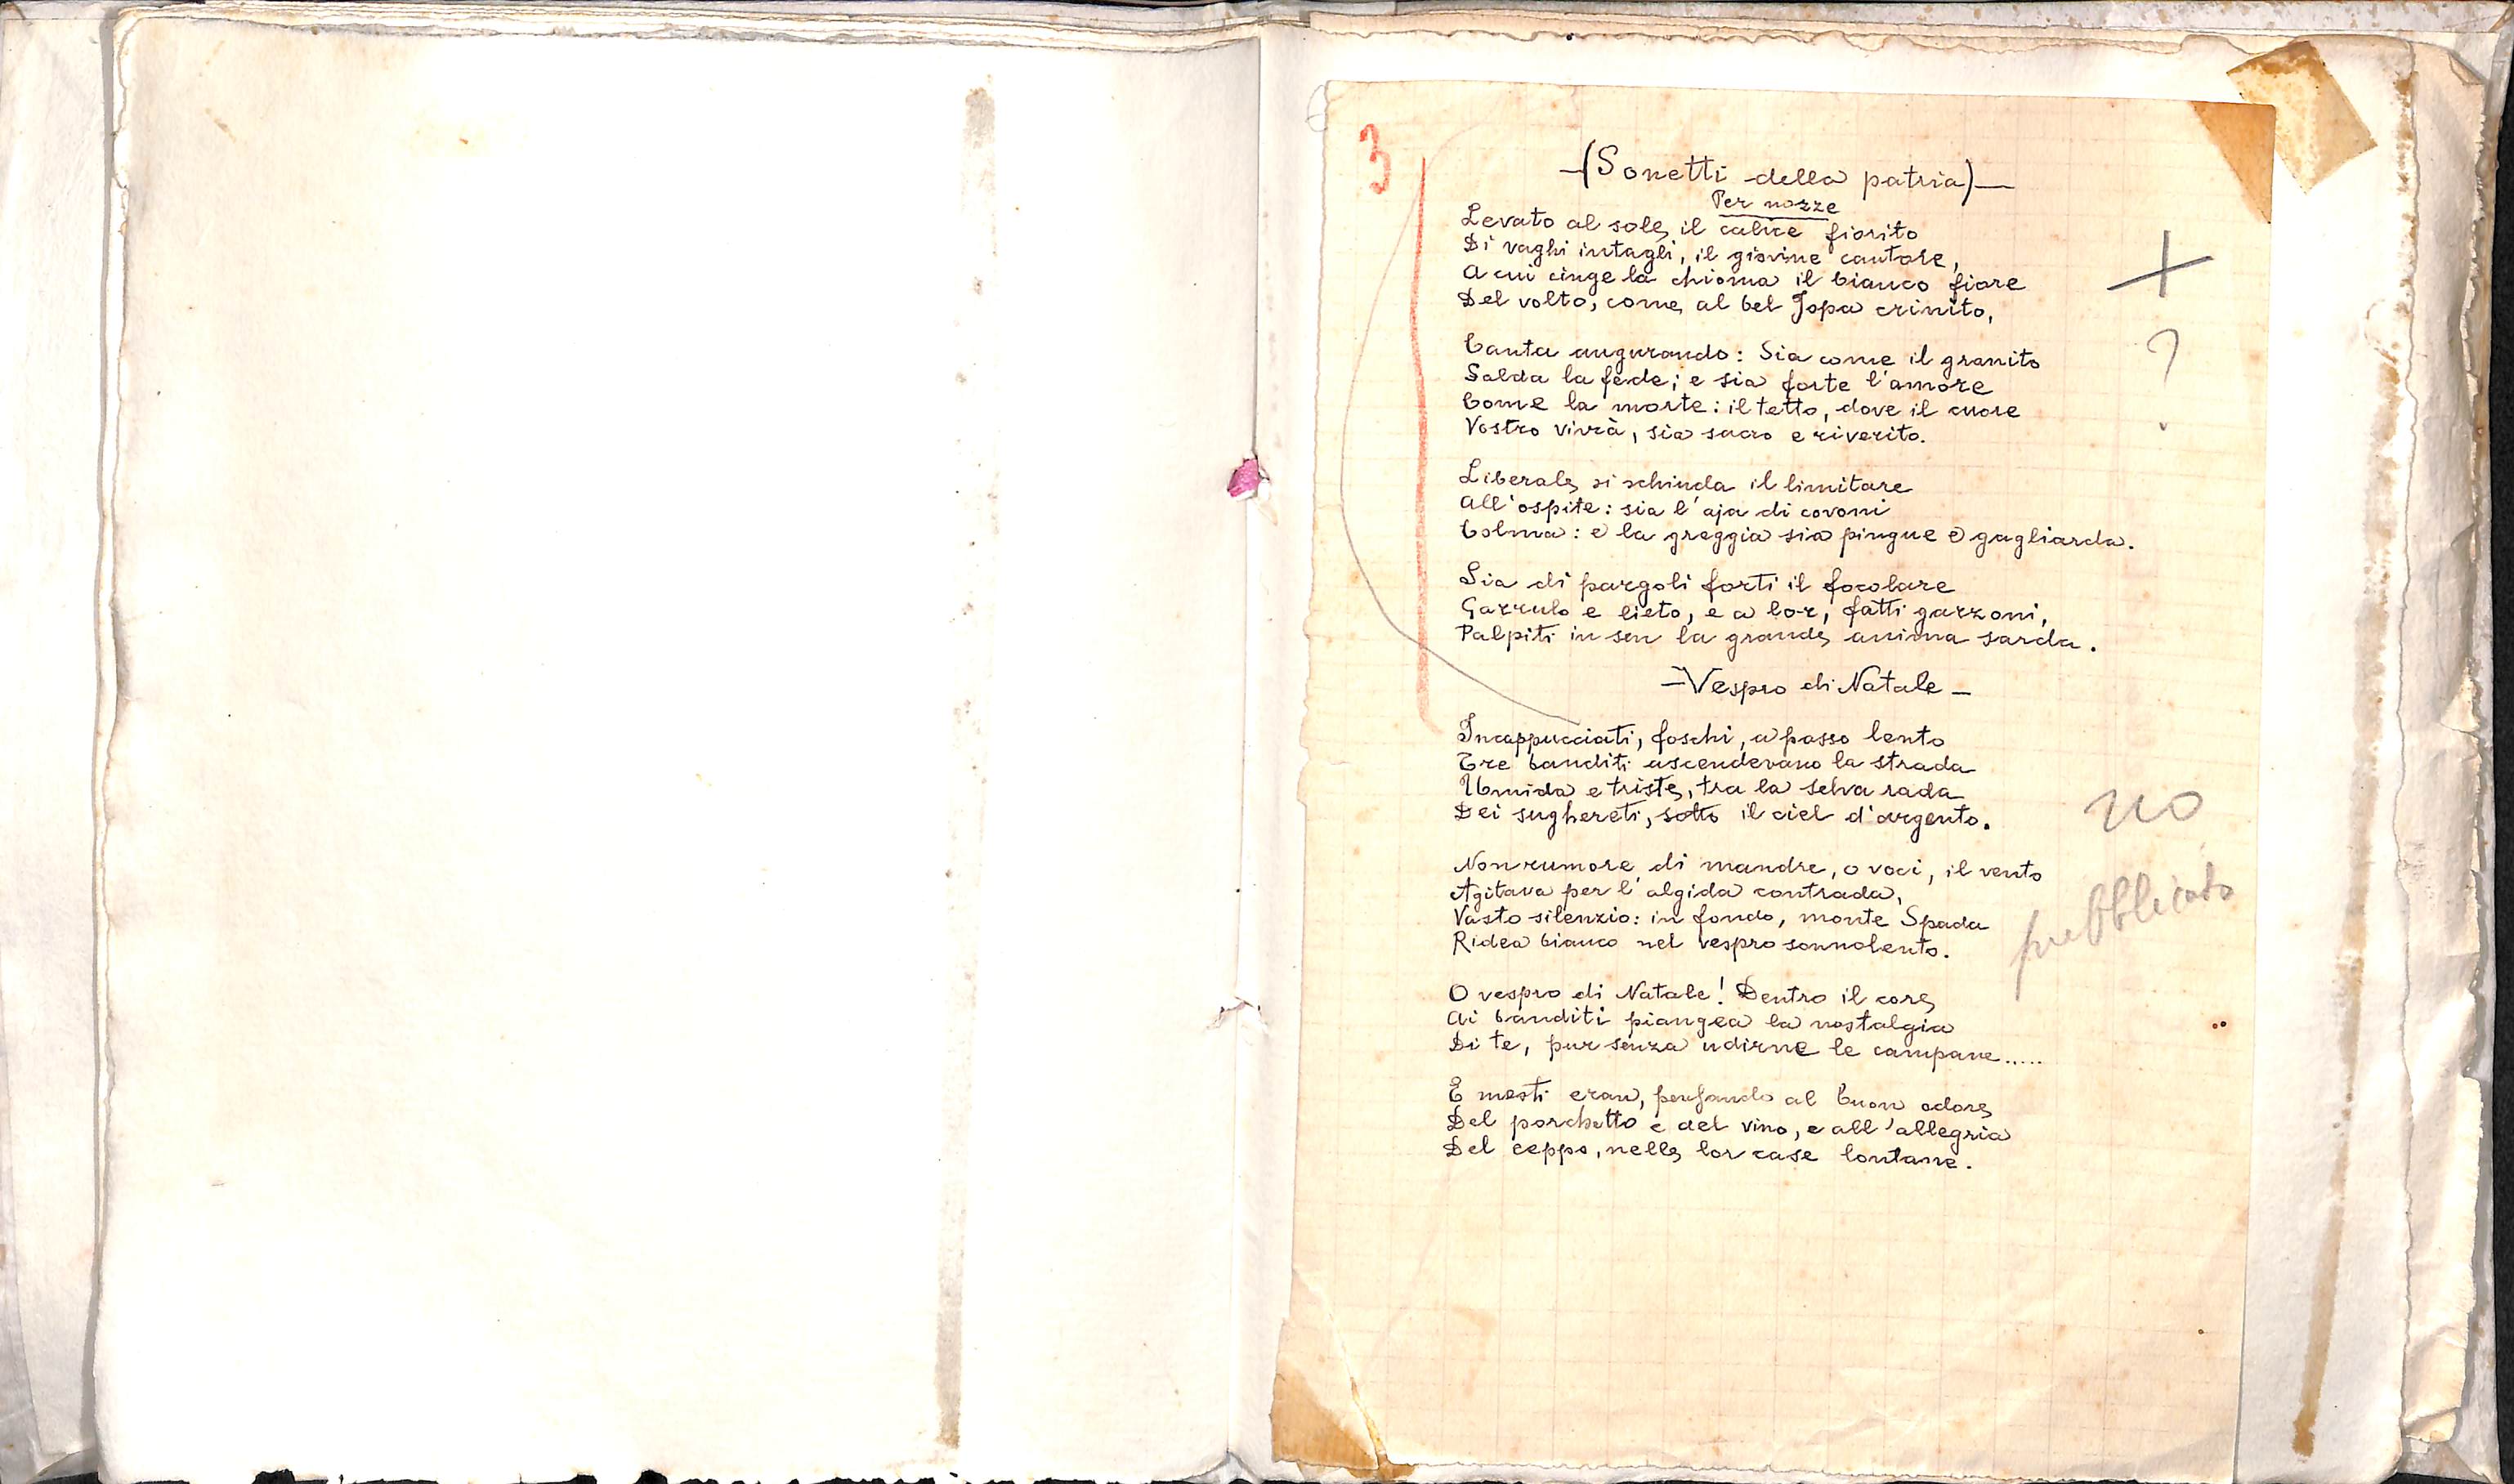 3
(Sonetti della patria)
Per nozze
Levato al sole, il calice fiorito
Di vaghi intagli, il giovine cantore,
A cui cinge la chioma il bianco fiore
Del volto, come al bel Jopa crinito,
Canta augurando: Sia come il granito
Salda la fede; e sia forte l'amore
Come la morte: il tetto, dove il cuore
Vostro vivrà, sia sacro e riverito.
Liberale si schiuda il limitare
All'ospite: sia l'aja di covoni
Colma: e la greggia sia pingue e gagliarda.
Sia di pargoli forti il focolare
Garrulo e lieto, e a lor, fatti garzoni,
Palpiti in sen la grande anima sarda.
+
?
- Vespro di Natale -
Incappucciati, foschi, a passo lento
Tre banditi ascendevano la strada
Umida e triste, tra la selva rada
Dei sughereti, sotto il ciel d'argento.
no
Non rumore di mandre, o voci, il vento
Agitava per l'algida contrada,
Vasto silenzio: in fondo, monte Spada
Ridea bianco nel vespro sonnolento.
pubblicato
O vespro di Natale! Dentro il core
Ai banditi piangea la nostalgia
Di te, pur senza udirne le campane.....
E mesti eran, pensando al buon odore
Del porchetto e del vino, e all'allegria
Del ceppo, nelle lor case lontane.